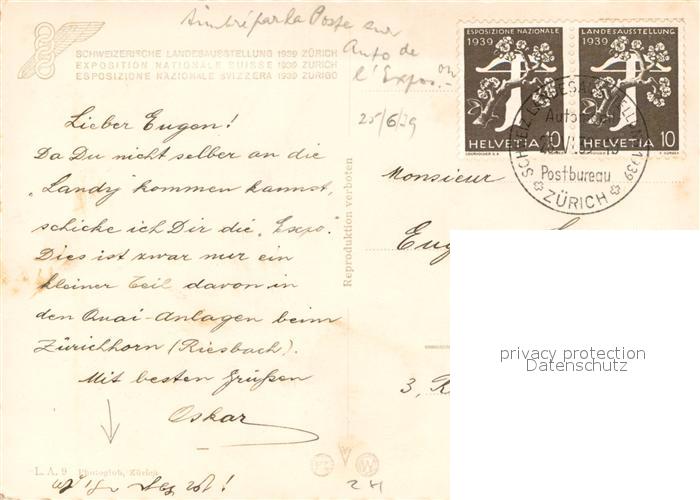 timbré par la Poste sur
Auto de
l'Expos.-on
SCHWEIZERISCHE LANDESAUSSTELLUNG 1939 ZÜRICH
EXPOSITION NATIONALE SUISSE 1939 ZURICH
ESPOSIZIONE NAZIONALE SVIZZERA 1939 ZURIGO
25/6/39
ESPOSIZIONE NAZIONALE
1939
HELVETIA 10
LANDESAUSSTELLUNG
1939
HELVETIA 10
SCHWEIZ. LANDESAUSSTELLUNG 1939
Postbureau
ZÜRICH
Lieber Eugen!
Da Du nicht selber an die
„Landy" kommen kannst,
schicke ich Dir die „Expo."
Dies ist zwar nur ein
kleiner Teil davon in
den Quai-Anlagen beim
Zürichhorn (Riesbach).
Mit besten Grüßen
Oskar
L. A. 9 Photoglob, Zürich
Reproduktion verboten
Monsieur
3, R
privacy protection
Datenschutz